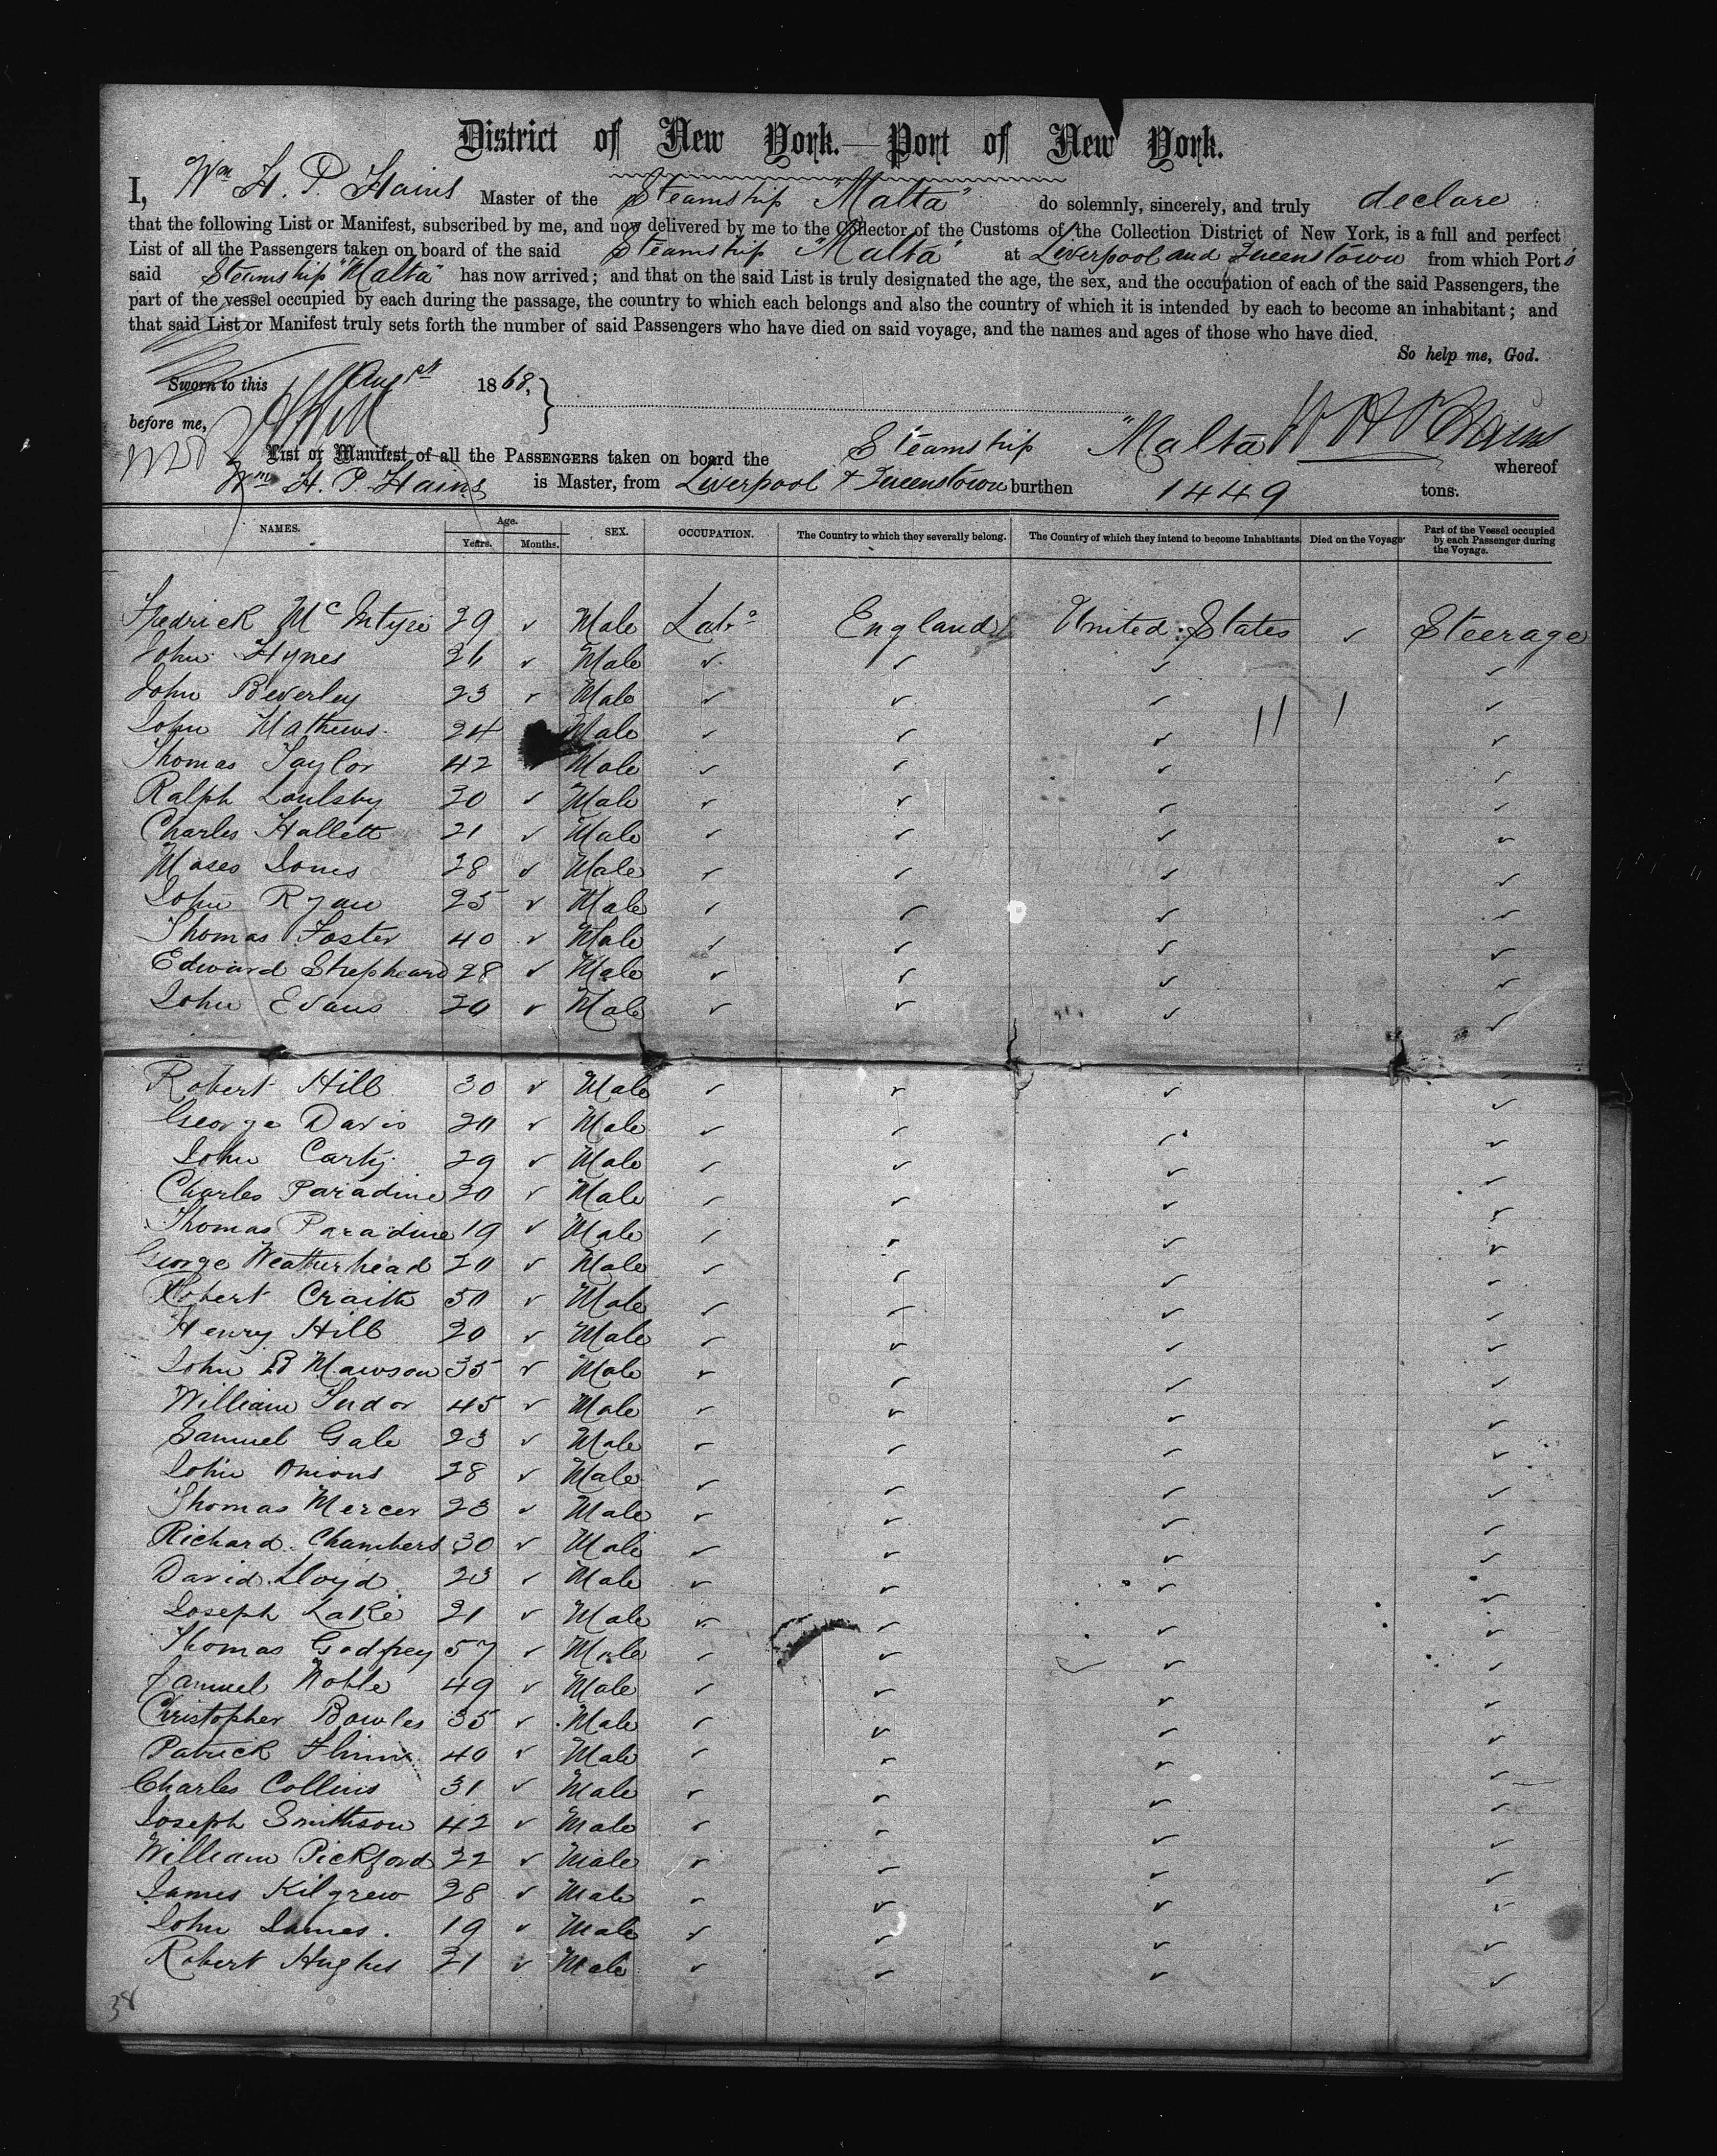 District of New York.—Port of New York.
I, Wm H. P. Hains Master of the Steamship "Malta" do solemnly, sincerely, and truly declare
that the following List or Manifest, subscribed by me, and now delivered by me to the Collector of the Customs of the Collection District of New York, is a full and perfect
List of all the Passengers taken on board of the said Steamship "Malta" at Liverpool and Queenstown from which Ports
said Steamship "Malta" has now arrived; and that on the said List is truly designated the age, the sex, and the occupation of each of the said Passengers, the
part of the vessel occupied by each during the passage, the country to which each belongs and also the country of which it is intended by each to become an inhabitant; and
that said List or Manifest truly sets forth the number of said Passengers who have died on said voyage, and the names and ages of those who have died.
So help me, God.
Sworn to this Aug 1st 1868,
before me,
List or Manifest of all the PASSENGERS taken on board the Steamship "Malta" W H P Hains whereof
Wm H. P. Hains is Master, from Liverpool & Queenstown burthen 1449 tons.
NAMES. Age. Years. Months. SEX. OCCUPATION. The Country to which they severally belong. The Country of which they intend to become Inhabitants. Died on the Voyage. Part of the Vessel occupied by each Passenger during the Voyage.
Fredrick McIntyre 29 ✓ Male Labr England United States ✓ Steerage
John Hynes 26 ✓ Male ✓ ✓ ✓ ✓
John Beverley 23 ✓ Male ✓ ✓ ✓ ✓
John Mathews 24 Male ✓ ✓ ✓ ✓
Thomas Taylor 42 Male ✓ ✓ ✓ ✓
Ralph Loulsby 30 ✓ Male ✓ ✓ ✓ ✓
Charles Hallett 21 ✓ Male ✓ ✓ ✓ ✓
Moses Jones 28 ✓ Male ✓ ✓ ✓ ✓
John Ryan 25 ✓ Male ✓ ✓ ✓ ✓
Thomas Foster 40 ✓ Male ✓ ✓ ✓ ✓
Edward Strepheard 28 ✓ Male ✓ ✓ ✓ ✓
John Evans 20 ✓ Male ✓ ✓ ✓ ✓
Robert Hill 30 ✓ Male ✓ ✓ ✓ ✓
George Davis 20 ✓ Male ✓ ✓ ✓ ✓
John Carty 29 ✓ Male ✓ ✓ ✓ ✓
Charles Paradine 20 ✓ Male ✓ ✓ ✓ ✓
Thomas Paradine 19 ✓ Male ✓ ✓ ✓ ✓
George Weatherhead 20 ✓ Male ✓ ✓ ✓ ✓
Robert Craith 50 ✓ Male ✓ ✓ ✓ ✓
Henry Hill 20 ✓ Male ✓ ✓ ✓ ✓
John B Mawson 35 ✓ Male ✓ ✓ ✓ ✓
William Tudor 45 ✓ Male ✓ ✓ ✓ ✓
Samuel Gale 23 ✓ Male ✓ ✓ ✓ ✓
John Onions 28 ✓ Male ✓ ✓ ✓ ✓
Thomas Mercer 23 ✓ Male ✓ ✓ ✓ ✓
Richard Chambers 30 ✓ Male ✓ ✓ ✓ ✓
David Lloyd 23 ✓ Male ✓ ✓ ✓ ✓
Joseph Lake 21 ✓ Male ✓ ✓ ✓ ✓
Thomas Godfrey 57 ✓ Male ✓ ✓ ✓ ✓
Samuel Noble 49 ✓ Male ✓ ✓ ✓ ✓
Christopher Bowles 35 ✓ Male ✓ ✓ ✓ ✓
Patrick Flinn 40 ✓ Male ✓ ✓ ✓ ✓
Charles Collins 31 ✓ Male ✓ ✓ ✓ ✓
Joseph Smithson 42 ✓ Male ✓ ✓ ✓ ✓
William Pickford 22 ✓ Male ✓ ✓ ✓ ✓
James Kilgrew 28 ✓ Male ✓ ✓ ✓ ✓
John James. 19 ✓ Male ✓ ✓ ✓ ✓
Robert Hughes 21 ✓ Male ✓ ✓ ✓ ✓
38